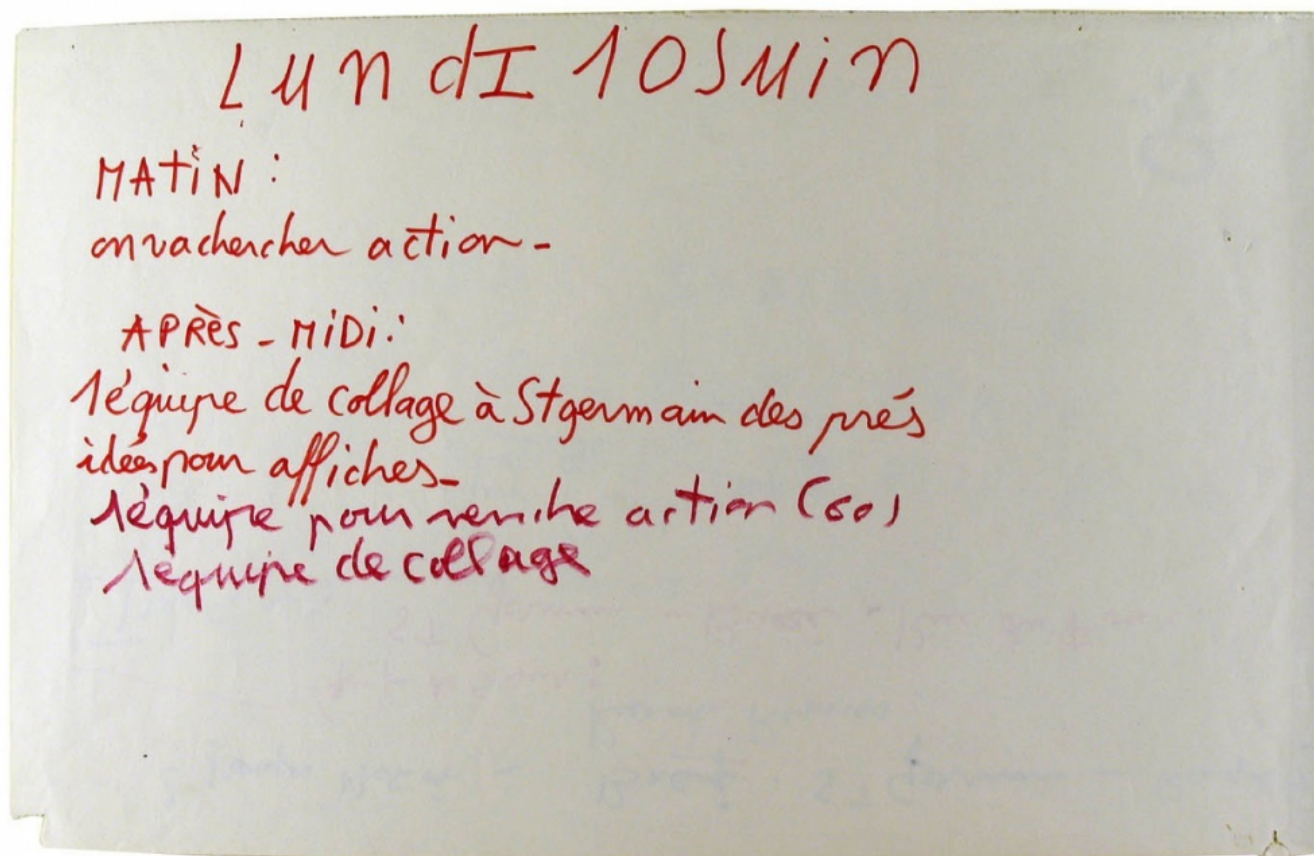 LundI 10 Juin
MATiN :
on va chercher action -
APRÈS - MiDi :
1 équipe de collage à St germain des prés
idées pour affiches -
1 équipe pour vendre action (60)
1 équipe de collage